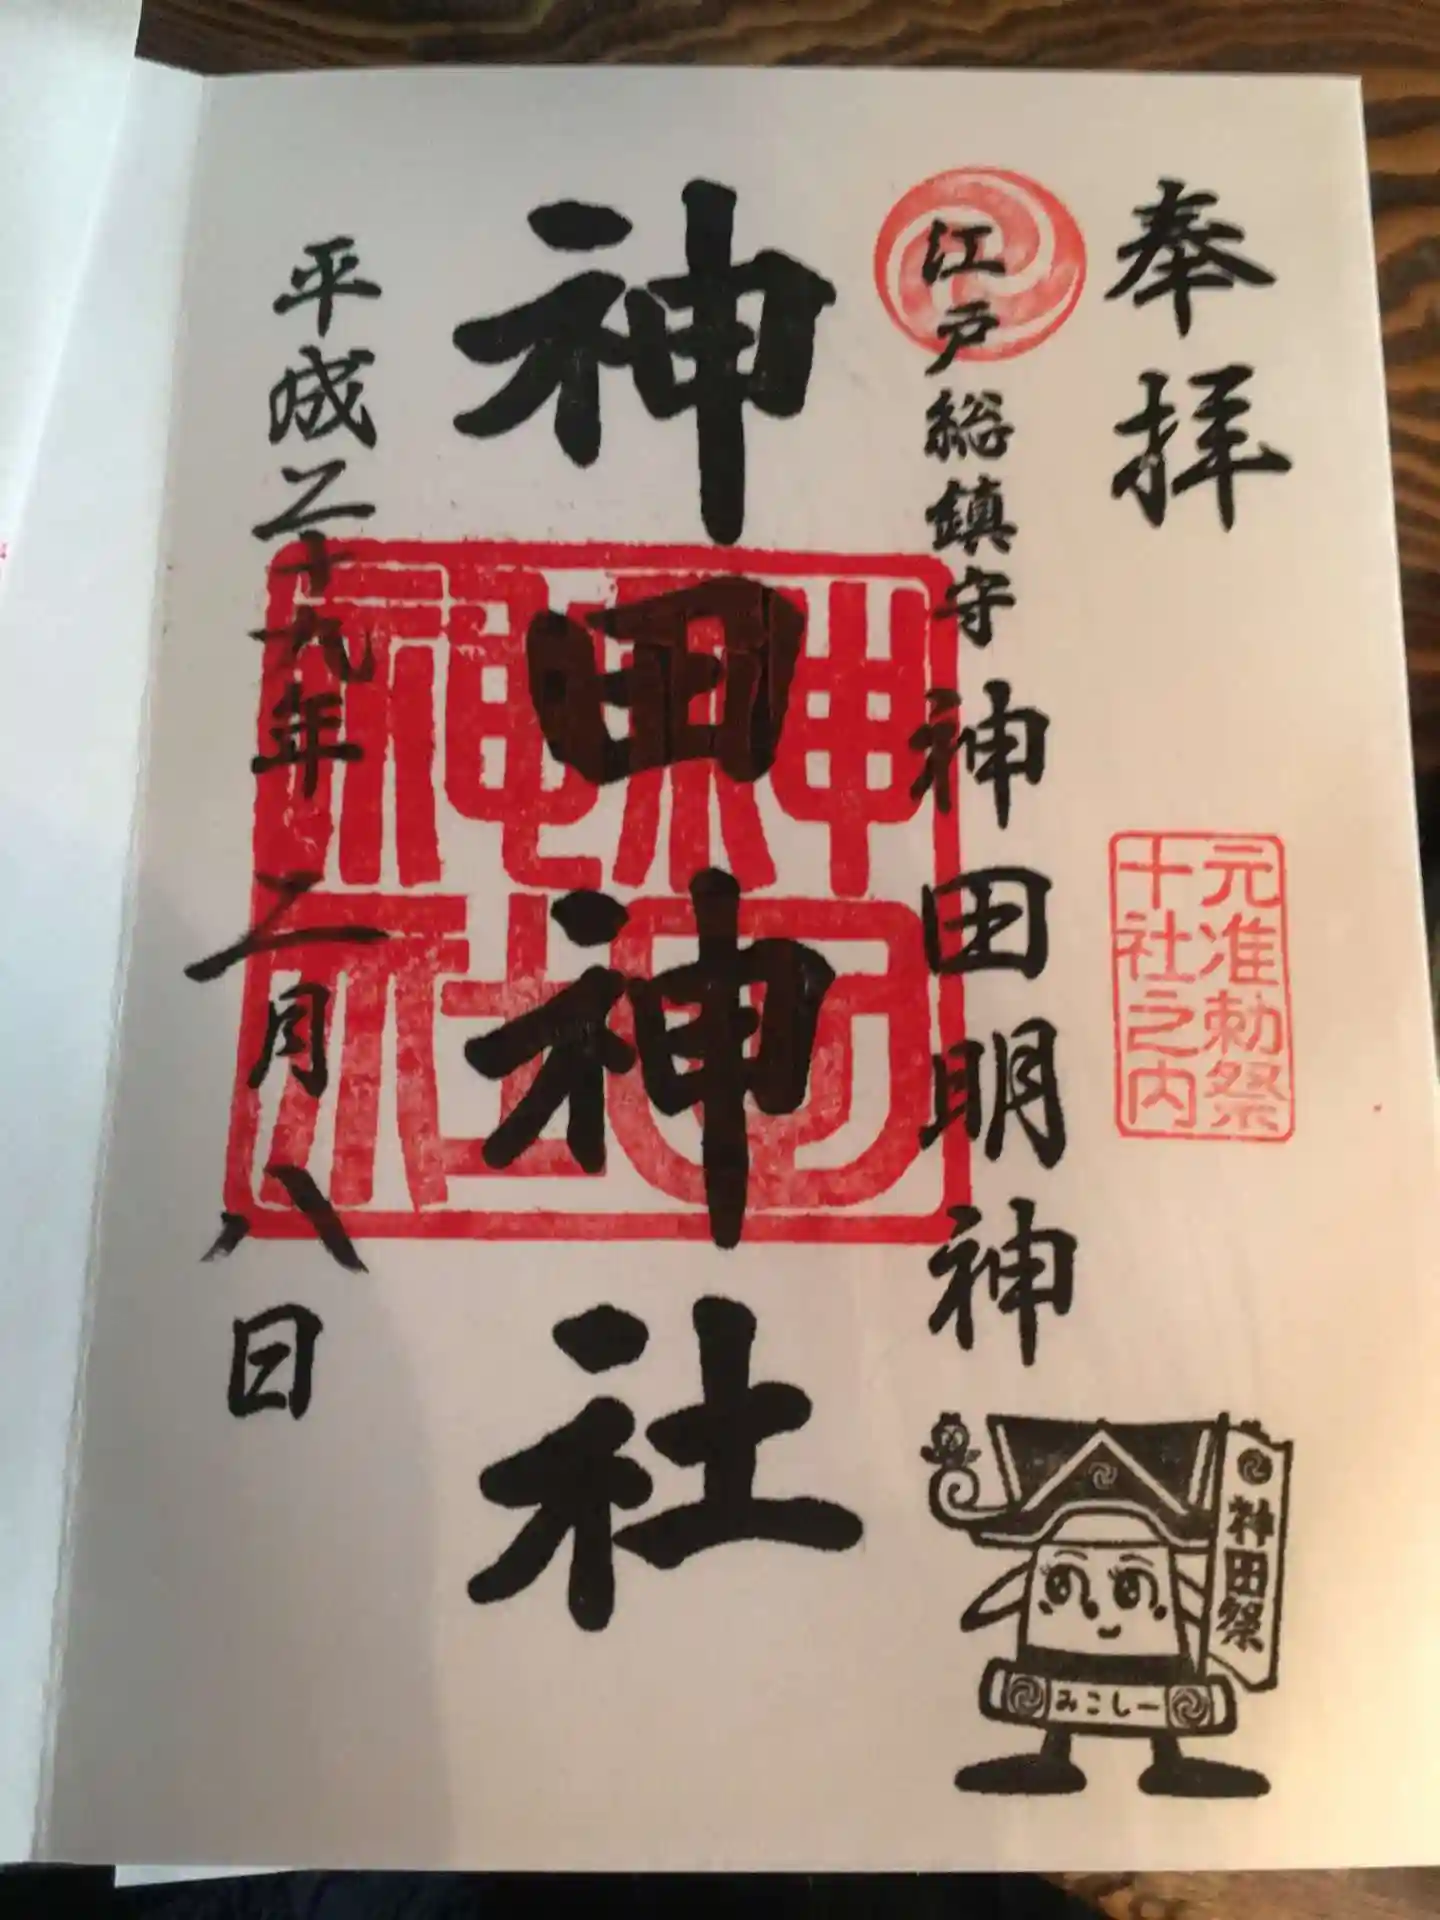 奉拝
元准勅祭
十社之内
江戸総鎮守 神田明神
神田祭
みこしー
神田神社
神田
神社
平成二十九年二月八日